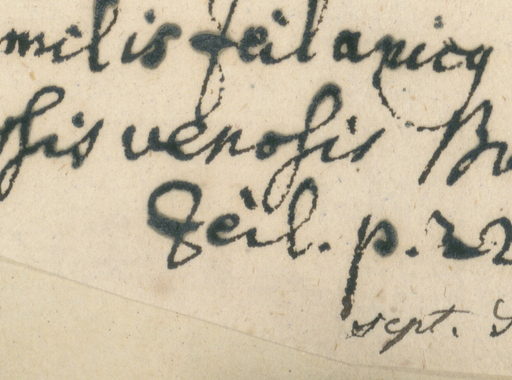 milis Zeilanicq
osis venosis Bu
Zeil. p. 22
sept.